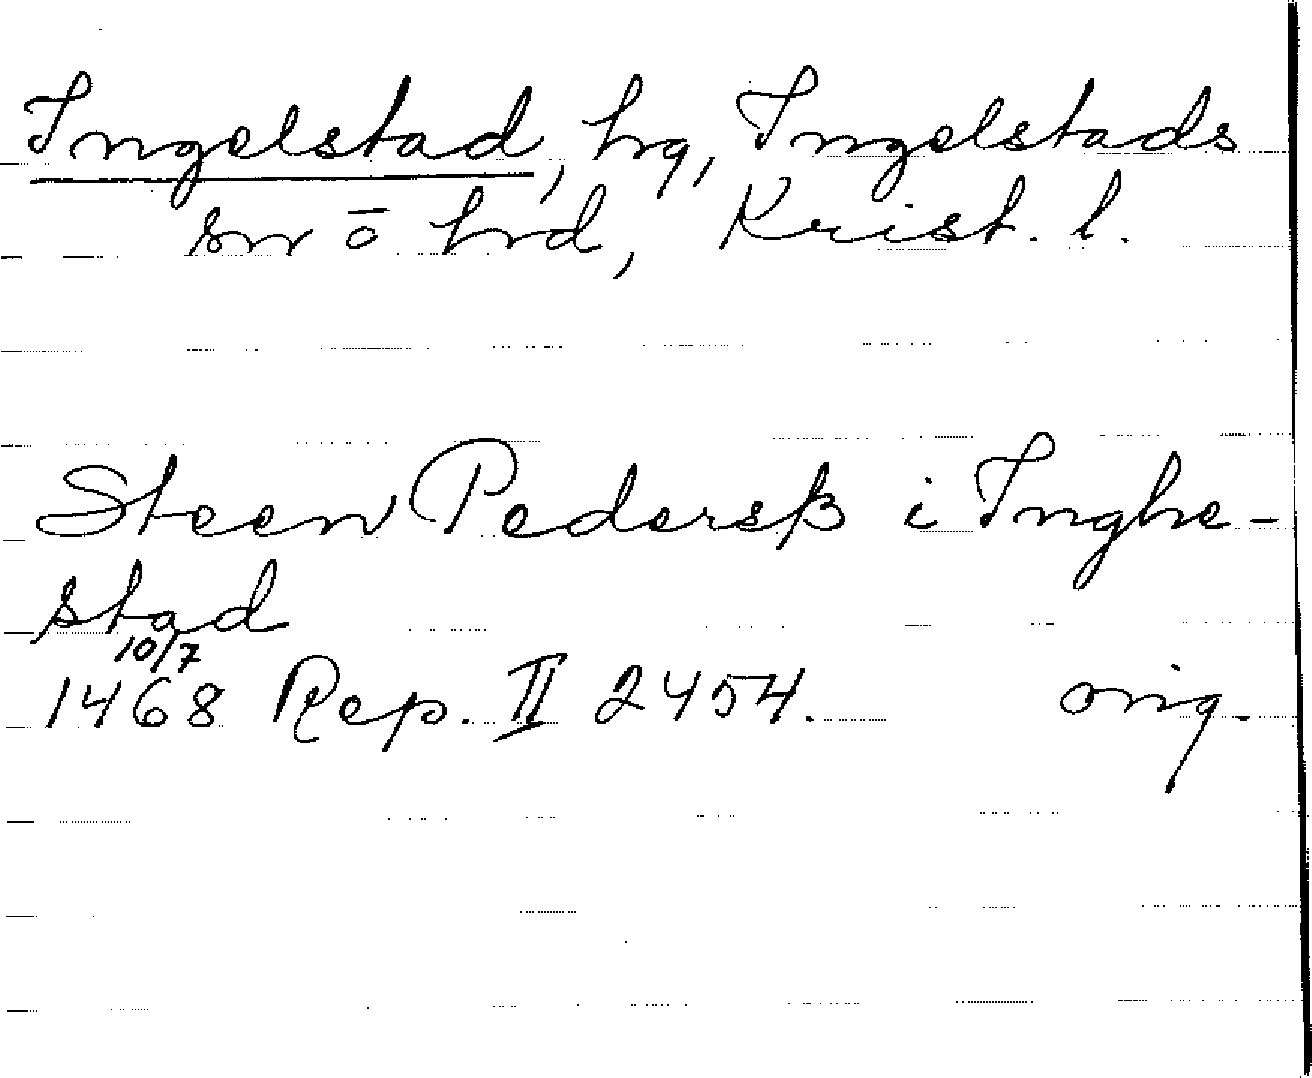 Ingelstad, hg, Ingelstads
sn ō hrd, Krist. l.
Steen Pedersß i Inghe-
stad
10/7
1468 Rep. II 2454. orig.